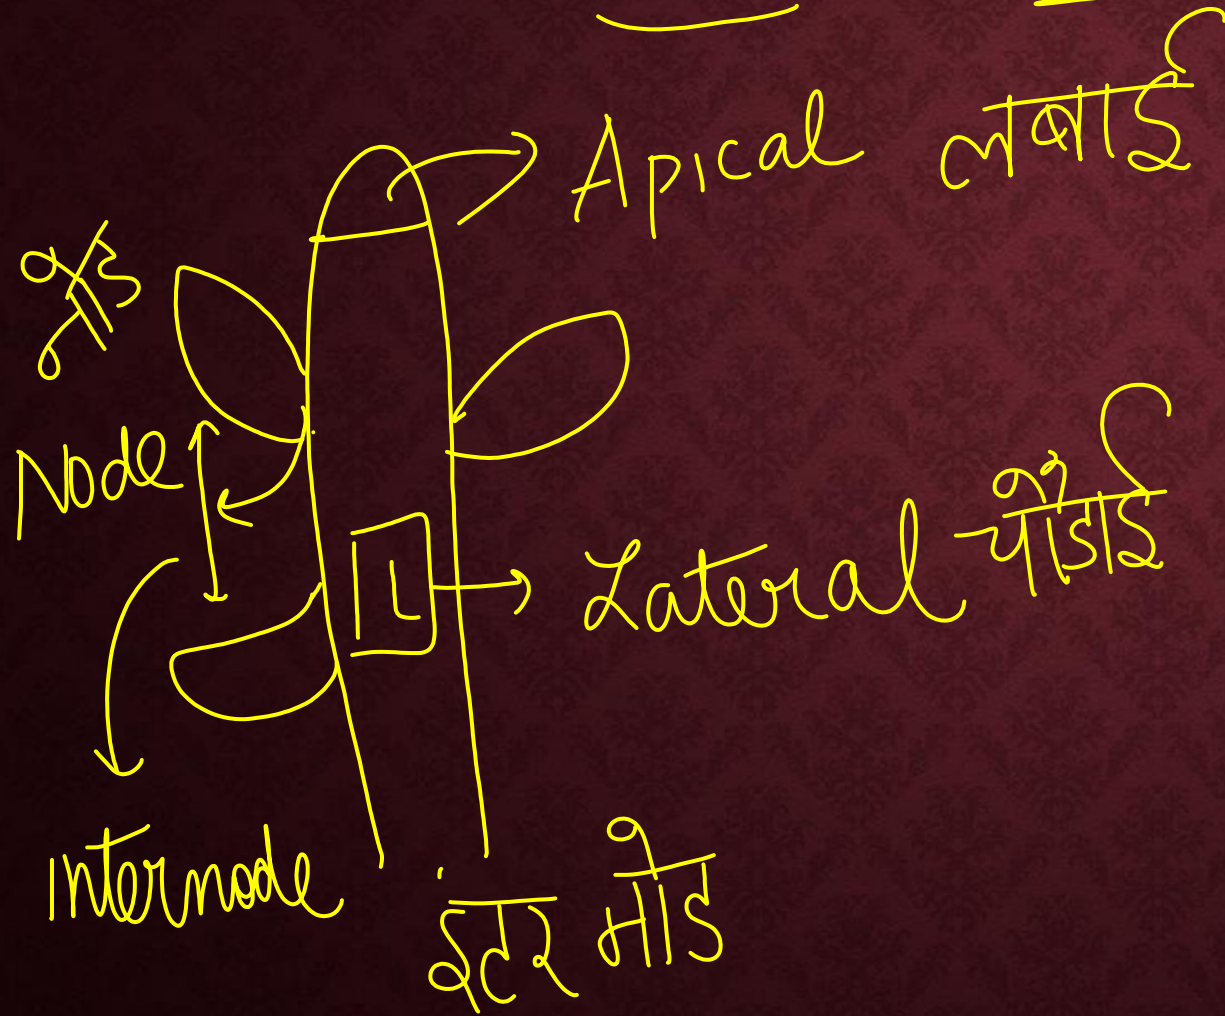 Apical लबाई
नोड
Node
L
Lateral चौडाई
Internode
इंटर नोड